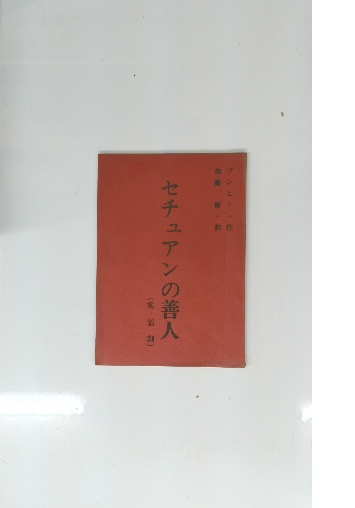 ブレヒト・作
加藤衛・訳
セチュアンの善人
（寓話劇）